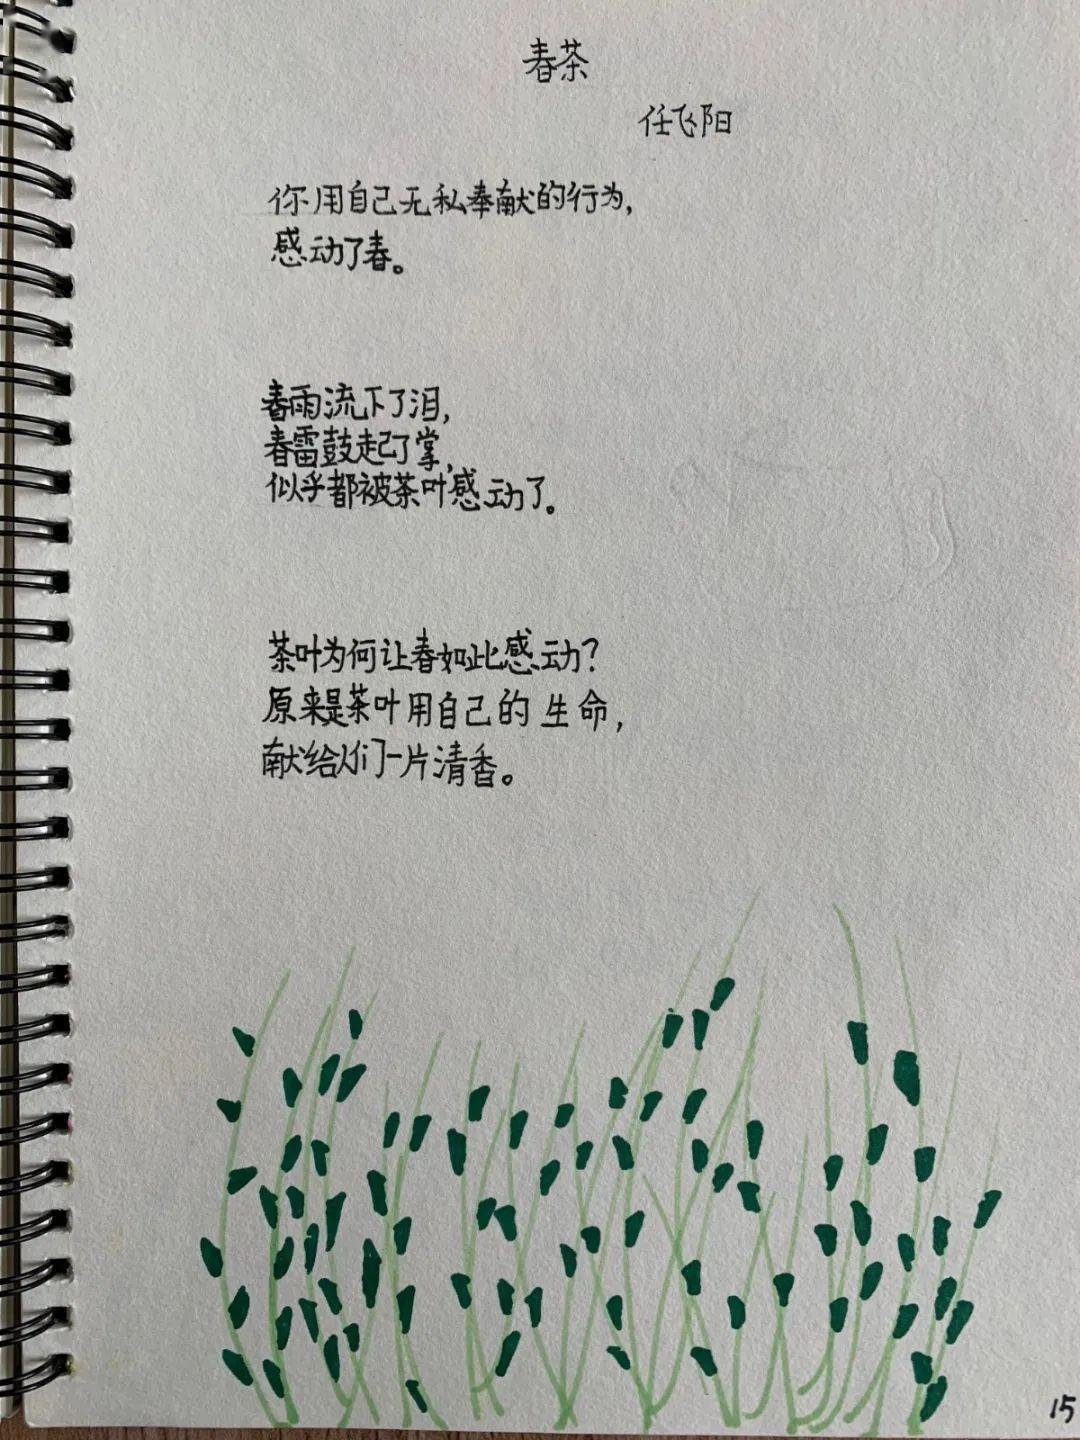 春茶
任飞阳
你用自己无私奉献的行为，
感动了春。
春雨流下了泪，
春雷鼓起了掌，
似乎都被茶叶感动了。
茶叶为何让春如此感动？
原来是茶叶用自己的生命，
献给人们一片清香。
15